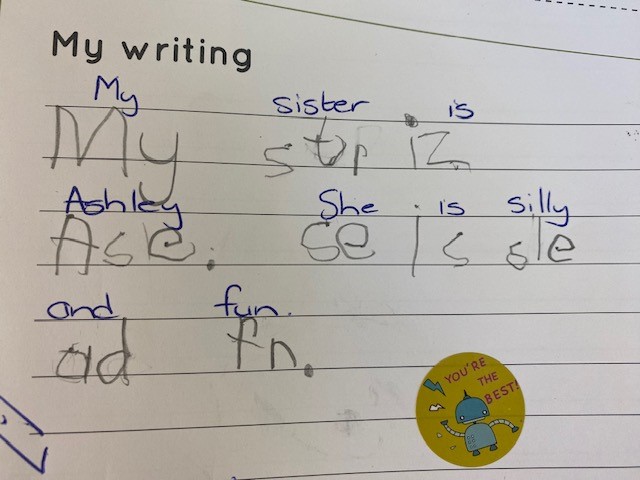 My writing
My sister is
My str iz
Ashley She is silly
Asle. se is sle
and fun.
ad fn.
YOU'RE
THE
BEST!